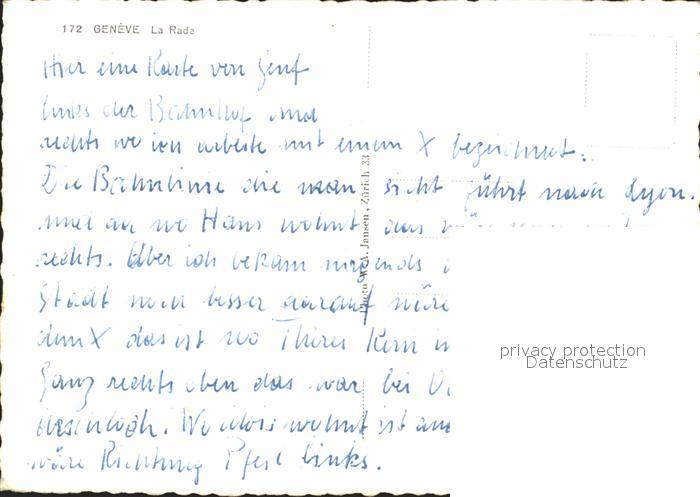 172 GENÈVE La Rade
Hier eine Karte von Genf
links der Bahnhof und
rechts wo ich arbeite mit einem X bezeichnet.
Die Bahnlinie die man sicht führt nach Lyon.
und da wo Hans wohnt das wäre
rechts. Aber ich bekam nirgends
Stadt noch besser darauf wäre
dem X das ist wo Theres Kern
Ganz rechts oben das war bei
Wo wohnt ist
wäre Richtung Pfeil links.
Photo W. A. Jansen, Zürich 23
privacy protection
Datenschutz